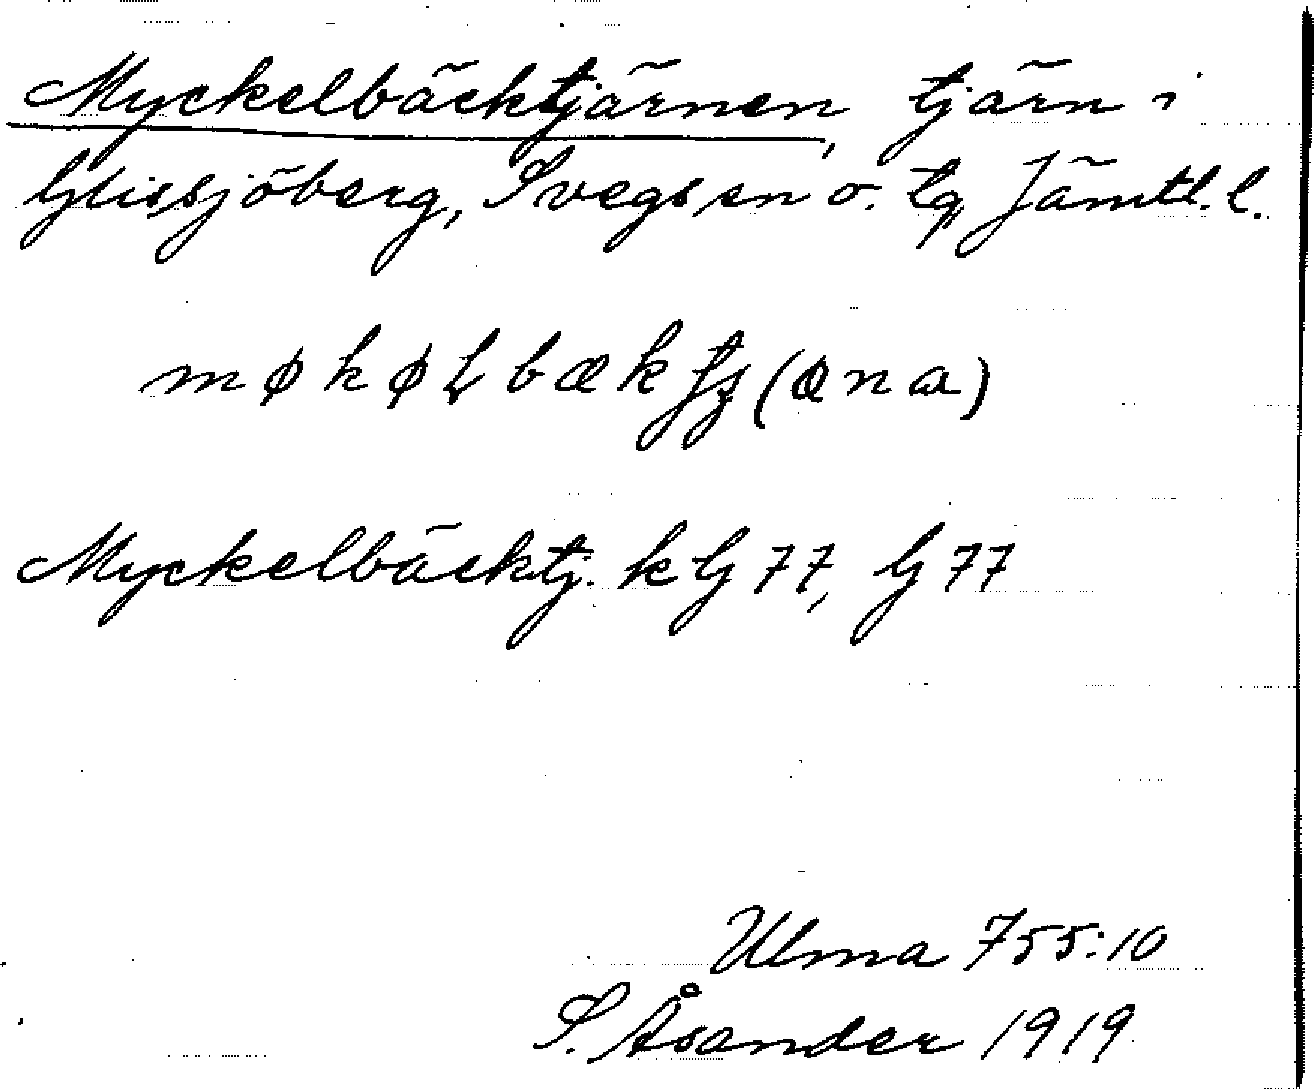 Myckelbäcktjärnen, tjärn i
Glissjöberg, Svegs sn o. tg Jämtl. l.
møkøɽbækʃʒ(œna)
Myckelbäcktj. k G 77, G 77
Ulma 755:10
S. Åsander 1919